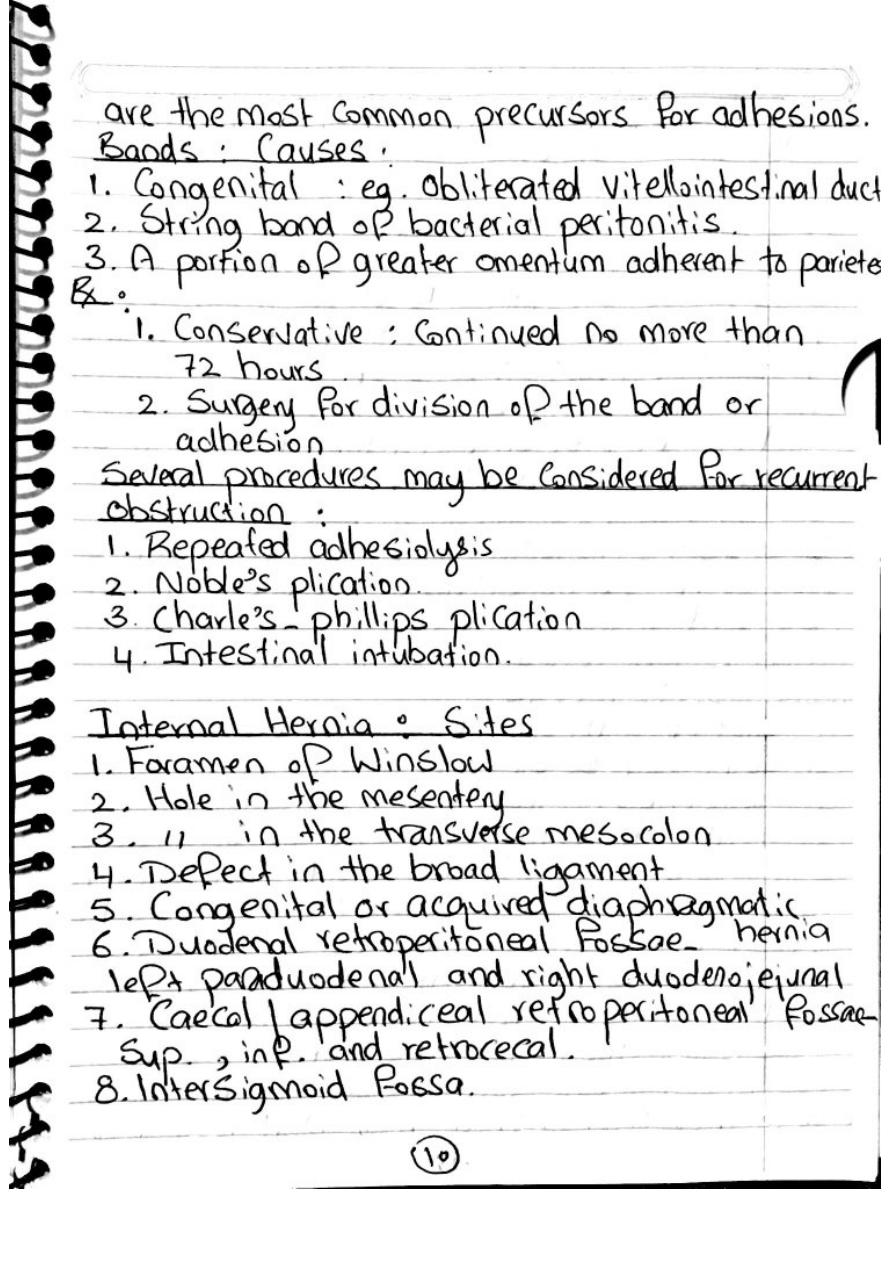 are the most common precursors for adhesions.
Bands : Causes.
1. Congenital : eg. obliterated vitellointestinal duct
2. String band of bacterial peritonitis.
3. A portion of greater omentum adherent to pariete
Rx :
1. Conservative : Continued no more than
72 hours
2. Surgery for division of the band or
adhesion
Several procedures may be Considered for recurrent
obstruction :
1. Repeated adhesiolysis
2. Noble's plication.
3. Charle's - phillips plication
4. Intestinal intubation.
Internal Hernia : Sites
1. Foramen of Winslow
2. Hole in the mesentery
3. 11 in the transverse mesocolon
4. Defect in the broad ligament
5. Congenital or acquired diaphragmatic
hernia
6. Duodenal retroperitoneal fossae -
left paraduodenal and right duodenojejunal
7. Caecal / appendiceal retroperitoneal fossae -
Sup. , inf. and retrocecal.
8. Intersigmoid fossa.
10